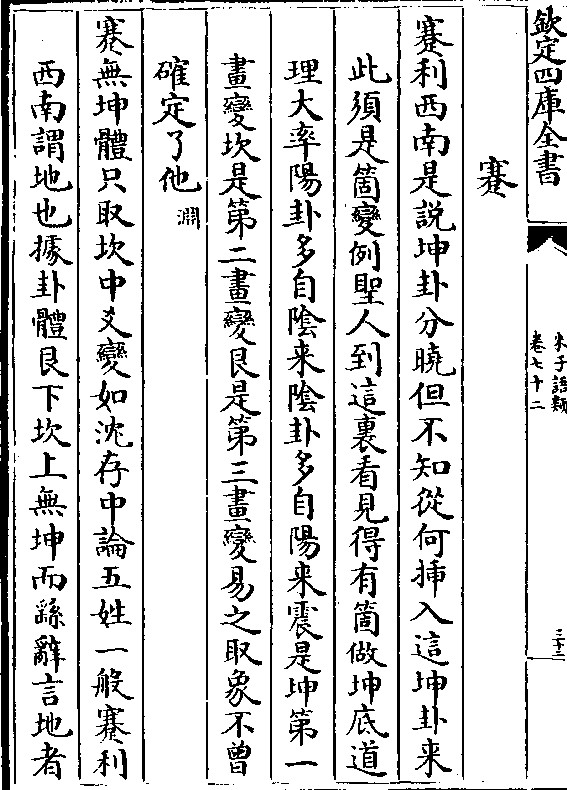 欽定四庫全書
蹇
蹇利西南是說坤卦分曉但不知從何揷入這坤卦来
此須是箇變例聖人到這裏看見得有箇做坤底道
理大率陽卦多自陰来陰卦多自陽来震是坤第一
畫變坎是第二畫變艮是第三畫變易之取象不曾
確定了他淵
蹇無坤體只取坎中爻變如沈存中論五姓一般蹇利
西南謂地也據卦體艮下坎上無坤而繇辭言地者
朱子語類
卷七十二
三十二